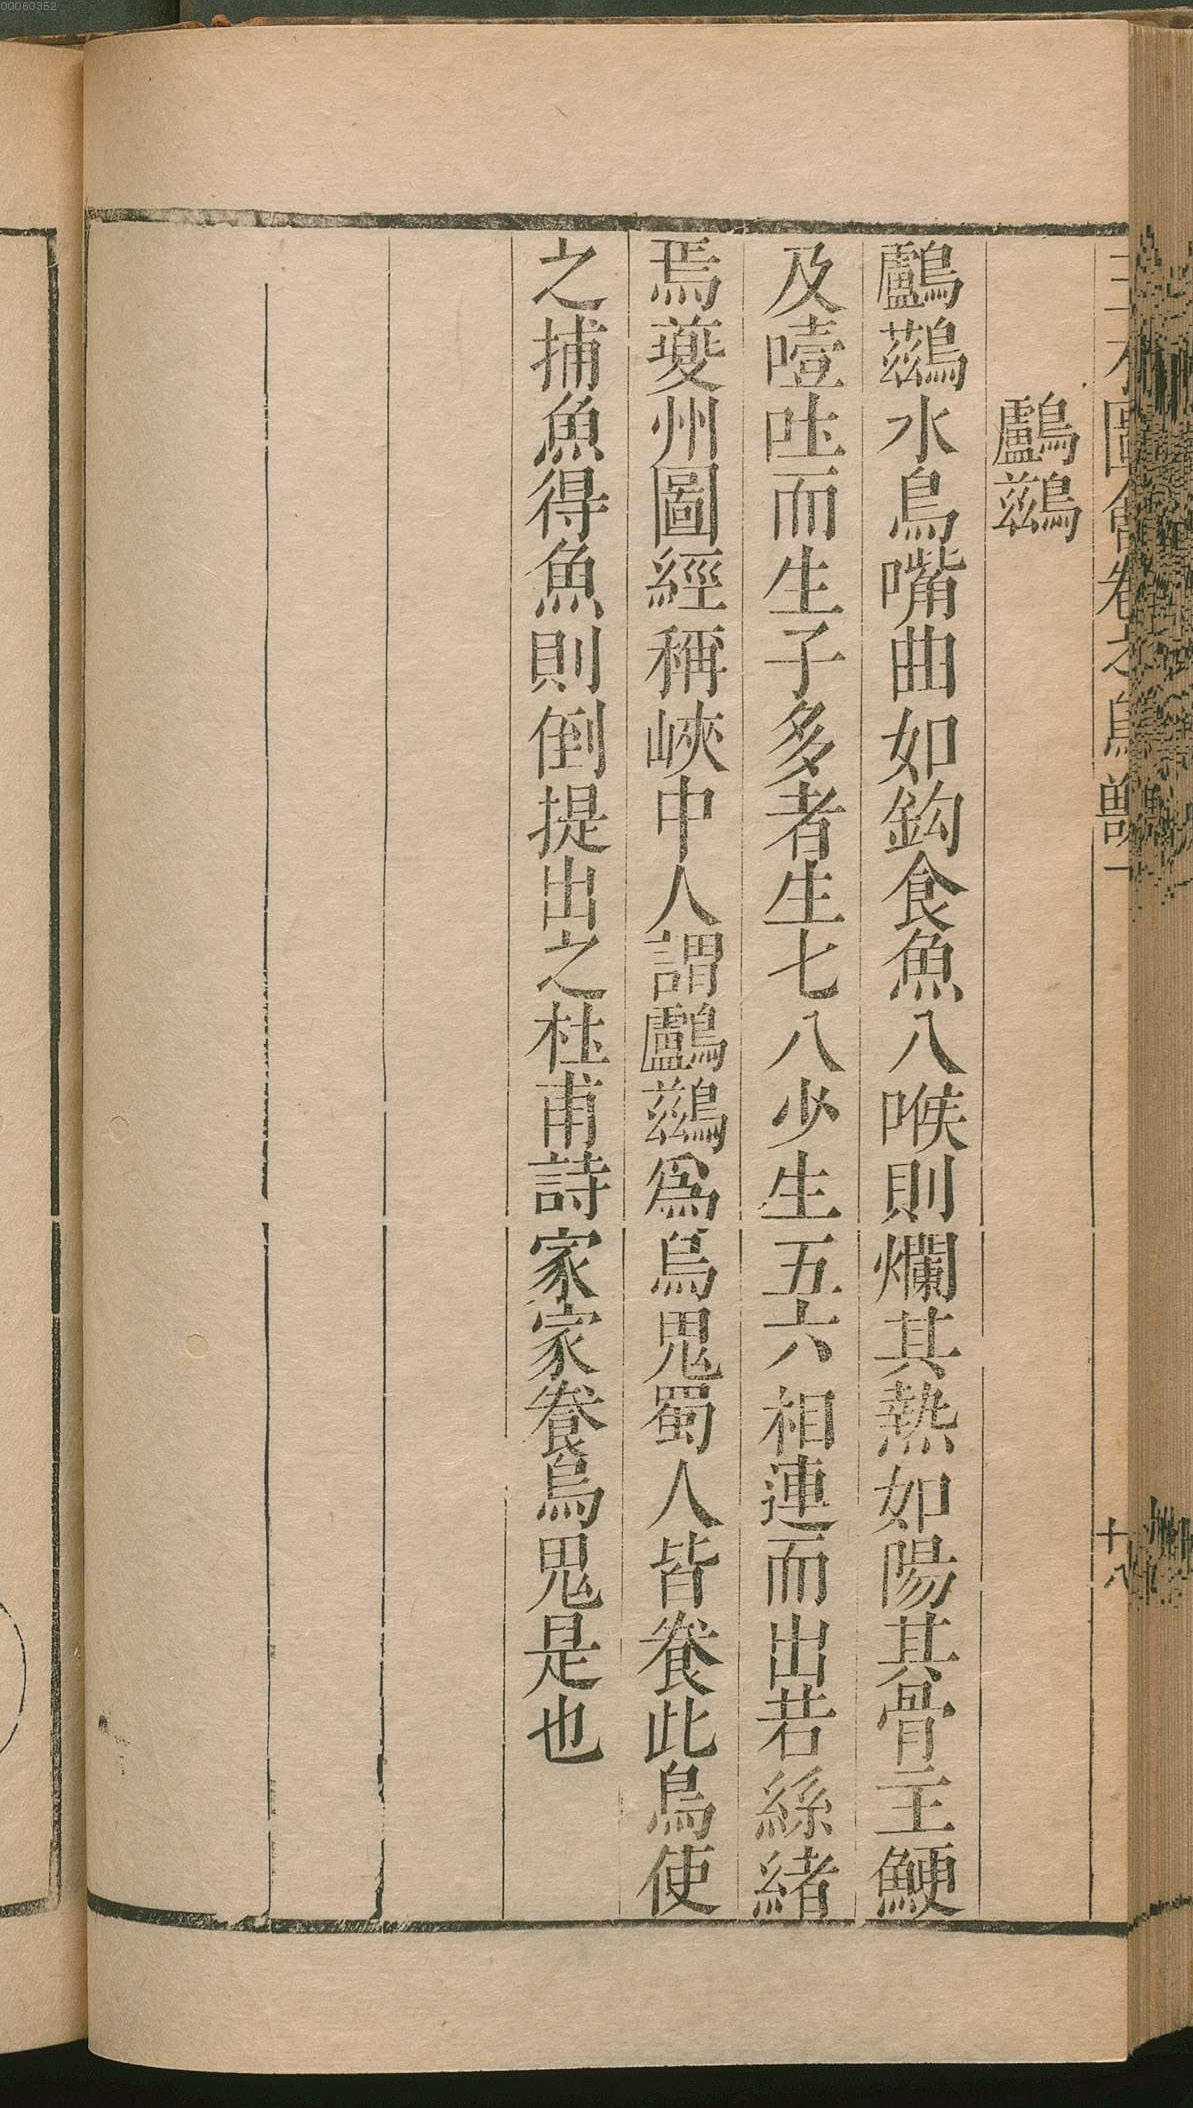 三才圖會卷之鳥獸一
十八
鸕鷀
鸕鷀水鳥嘴曲如鈎食魚入喉則爛其熱如陽其骨主鯁
及噎吐而生子多者生七八少生五六相連而出若絲緒
焉夔州圖經稱峽中人謂鸕鷀為烏鬼蜀人皆養此鳥使
之捕魚得魚則倒提出之杜甫詩家家養烏鬼是也
00060352